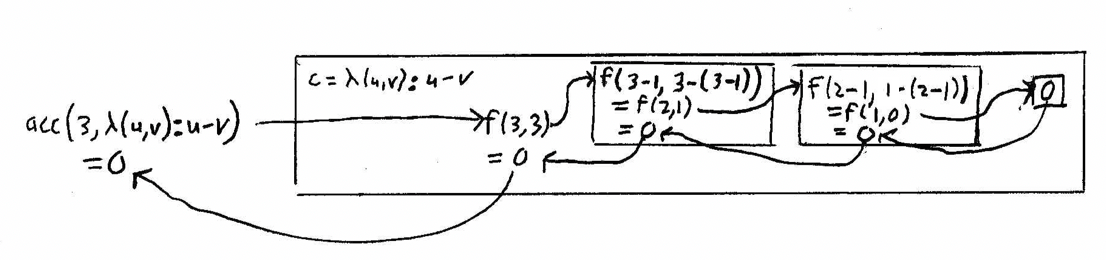 c = λ(u,v): u-v
acc(3, λ(u,v): u-v)
= 0
f(3,3)
= 0
f(3-1, 3-(3-1))
= f(2,1)
= 0
f(2-1, 1-(2-1))
= f(1,0)
= 0
0